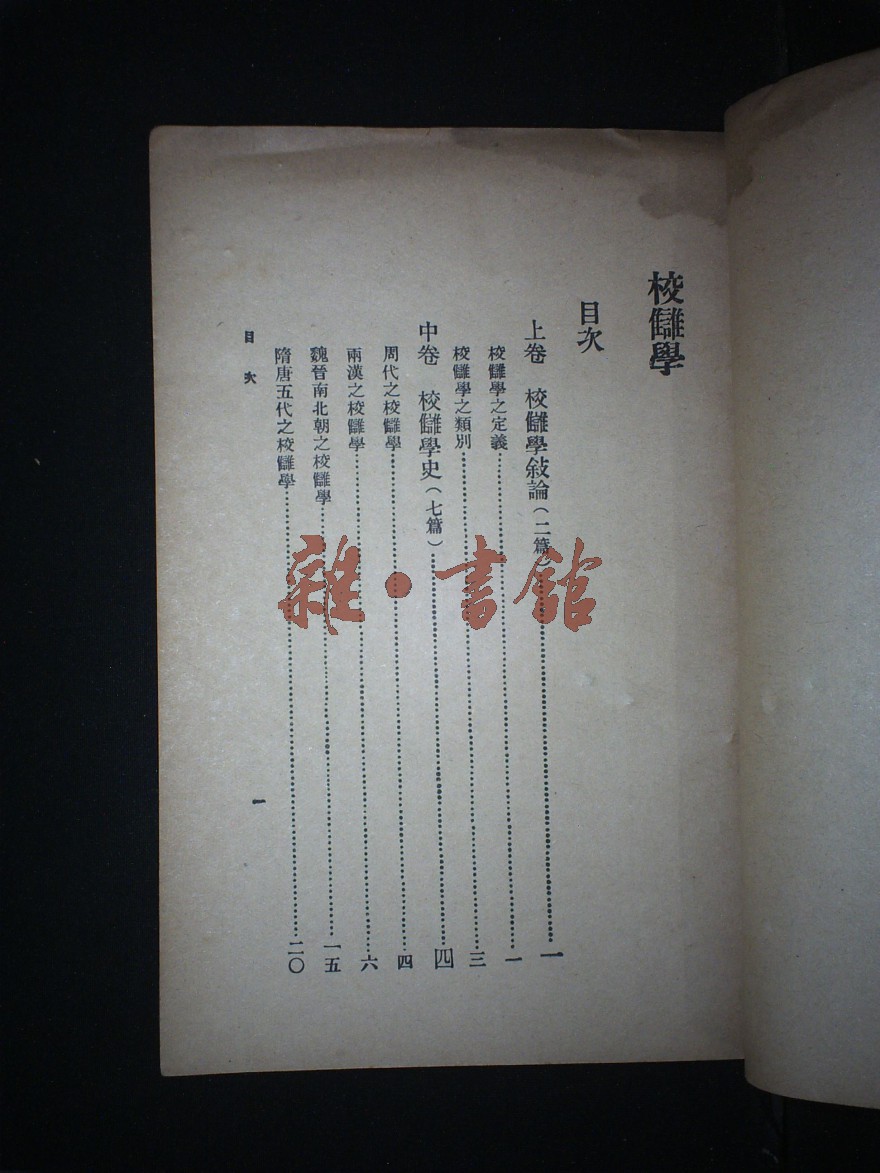 校讎學
目次
上卷 校讎學敍論(二篇)……一
校讎學之定義……一
校讎學之類別……三
中卷 校讎學史(七篇)……四
周代之校讎學……四
兩漢之校讎學……六
魏晉南北朝之校讎學……一五
隋唐五代之校讎學……二〇
目次
一
雜·書館